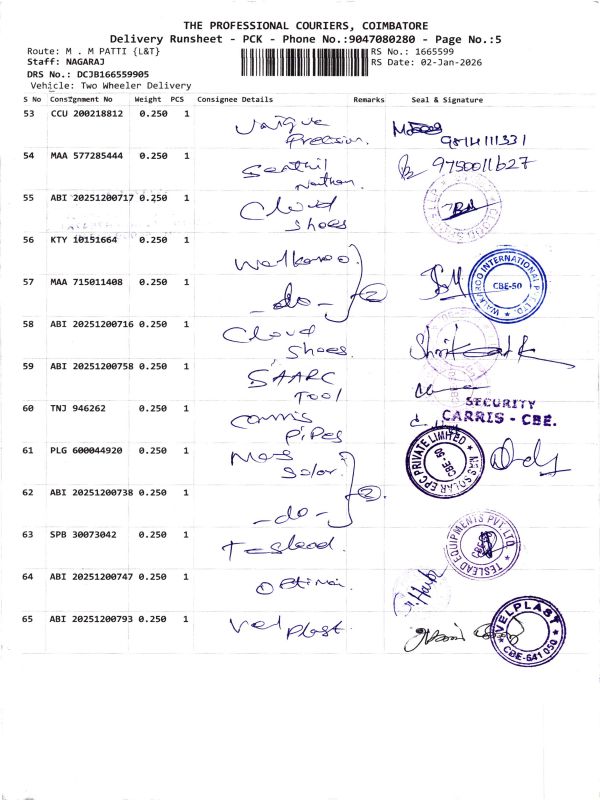 THE PROFESSIONAL COURIERS, COIMBATORE
Delivery Runsheet - PCK - Phone No.:9047080280 - Page No.:5
Route: M . M PATTI {L&T} RS No.: 1665599
Staff: NAGARAJ RS Date: 02-Jan-2026
DRS No.: DCJB166559905
Vehicle: Two Wheeler Delivery
S No Consignment No Weight PCS Consignee Details Remarks Seal & Signature
53 CCU 200218812 0.250 1 Unique
Precision.
54 MAA 577285444 0.250 1 Senthil 9750011627
Nathan
55 ABI 20251200717 0.250 1 Cloud
Shoes
56 KTY 10151664 0.250 1 Walkaroo
57 MAA 715011408 0.250 1 -do- 2 WALKAROO INTERNATIONAL PVT. LTD. CBE-50
58 ABI 20251200716 0.250 1 Cloud
Shoes.
59 ABI 20251200758 0.250 1 SAARC
Tool
60 TNJ 946262 0.250 1 Carris SECURITY
Pipes CARRIS - CBE.
61 PLG 600044920 0.250 1 Mas
Solar. SOLAR EPC PRIVATE LIMITED
62 ABI 20251200738 0.250 1 -do- 2
63 SPB 30073042 0.250 1 Teslead. TESLEAD EQUIPMENTS PVT. LTD.
64 ABI 20251200747 0.250 1
65 ABI 20251200793 0.250 1 Velplast. VELPLAST CBE-641 050